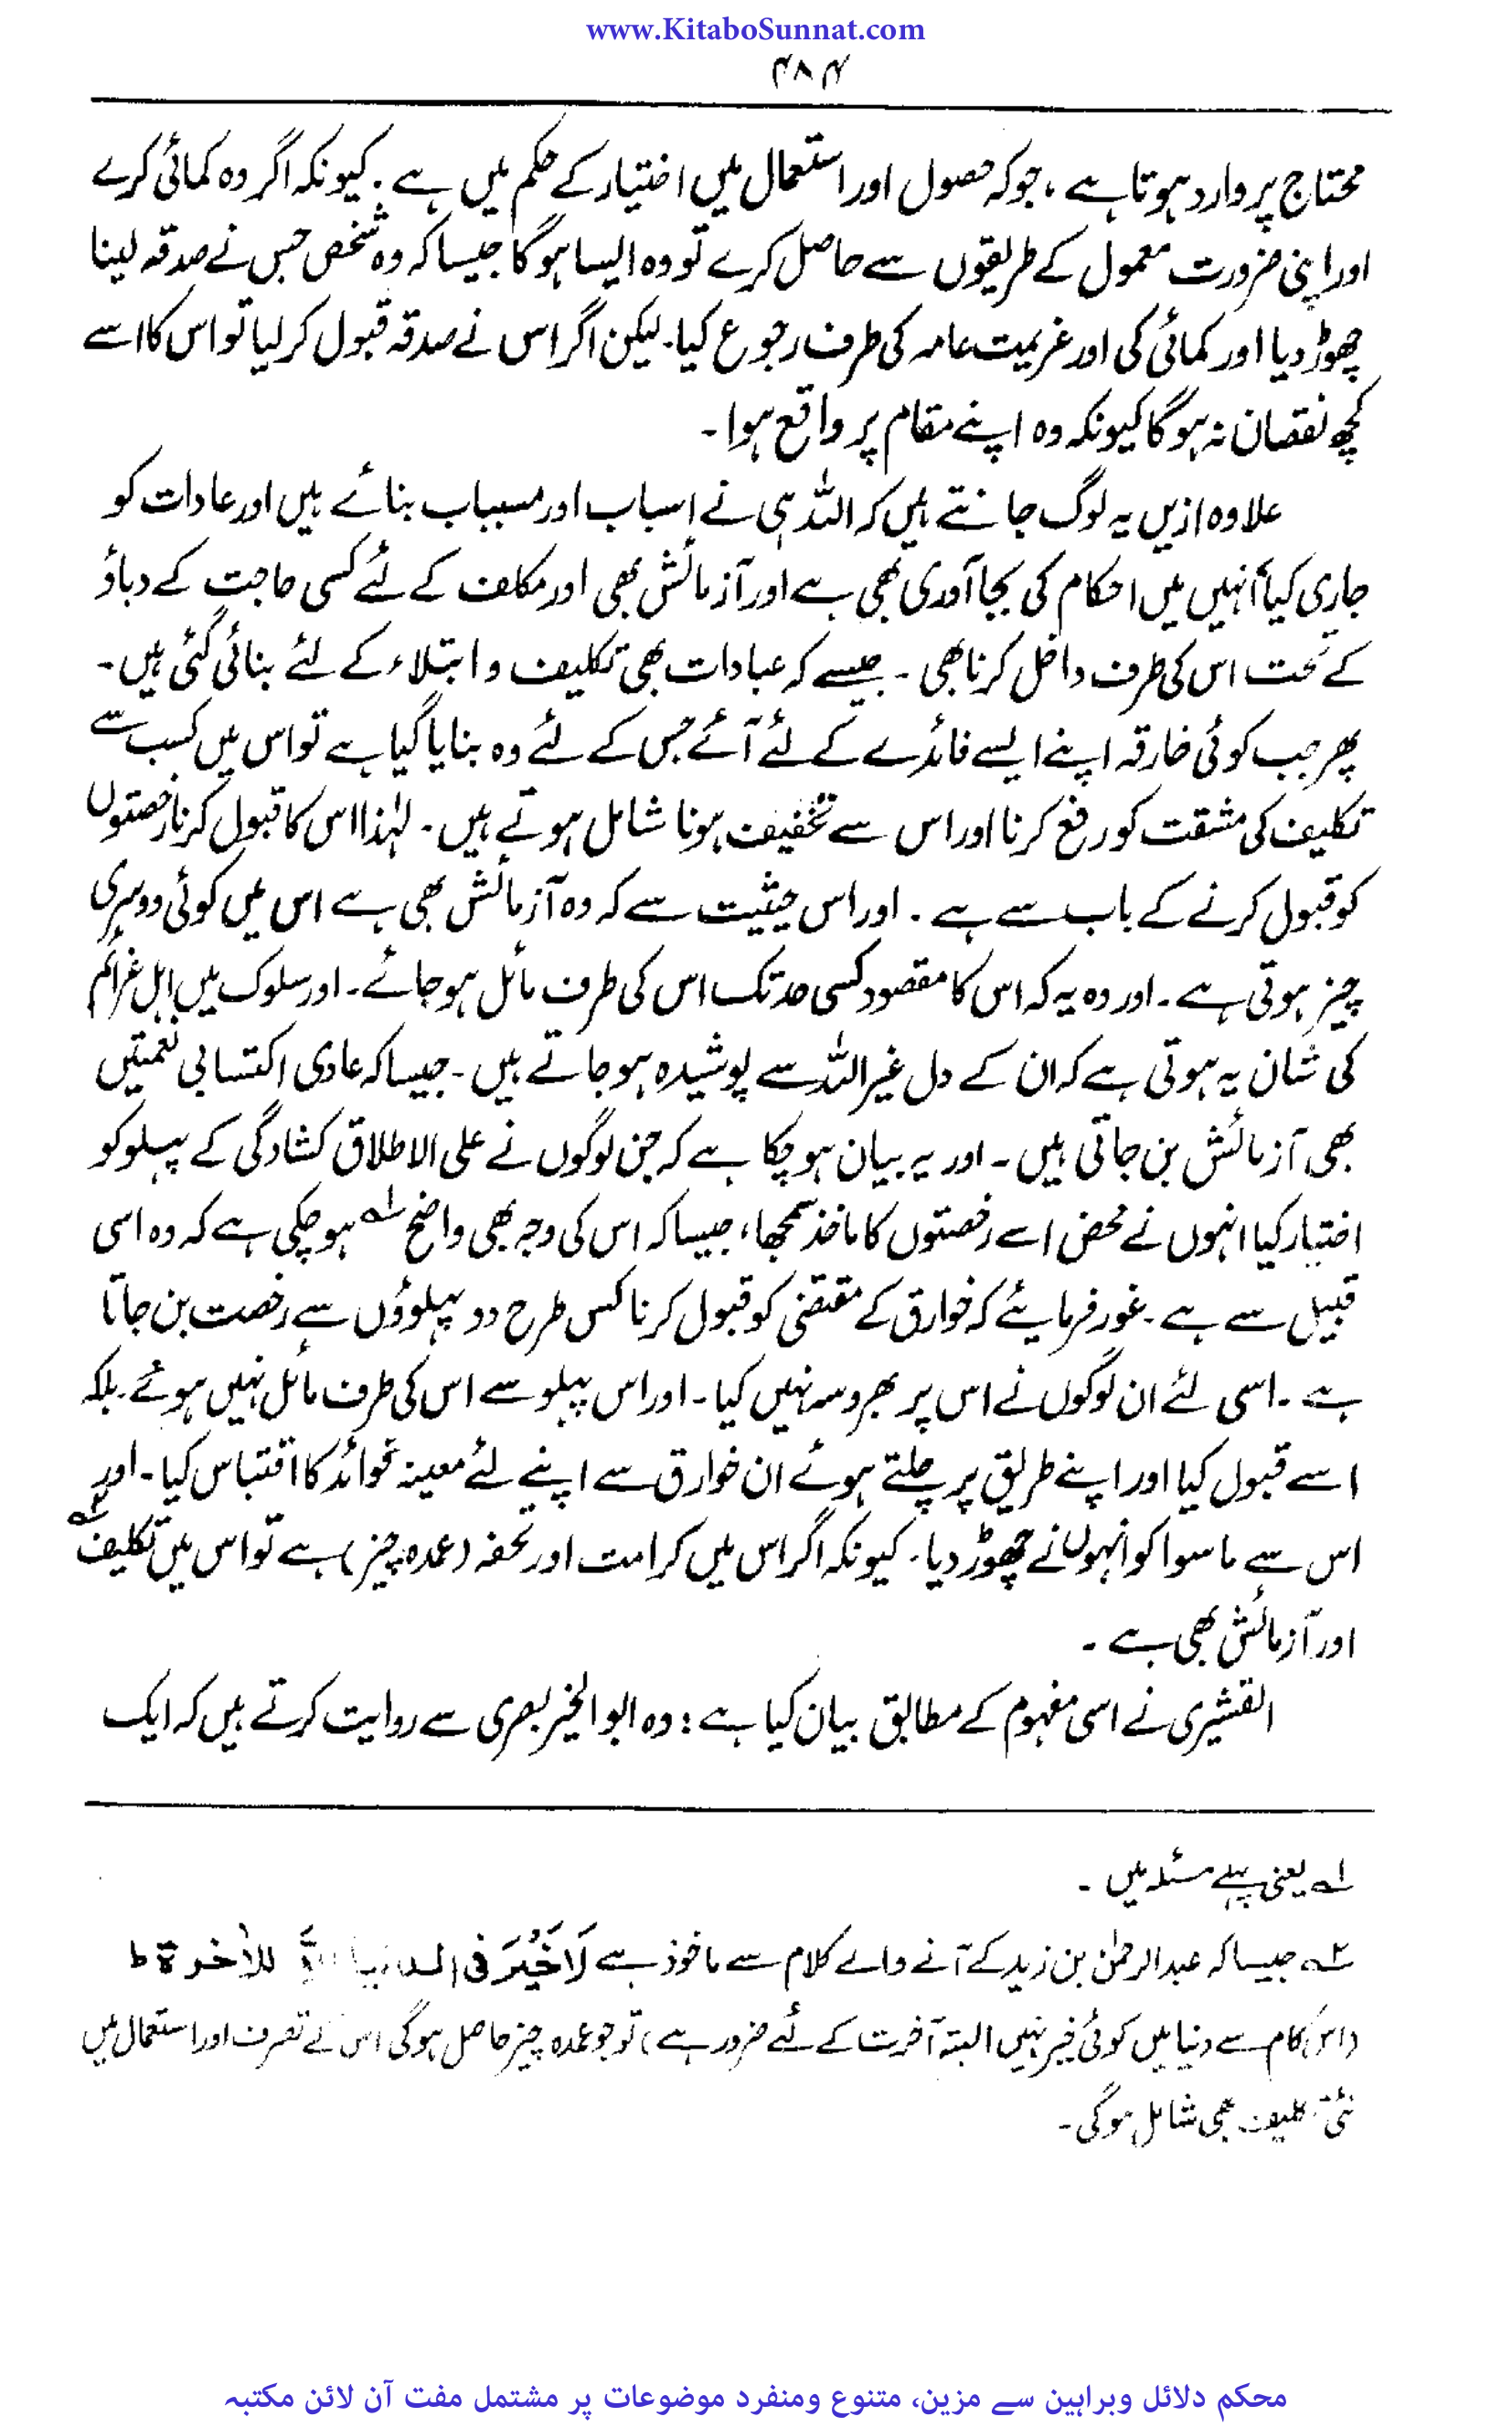 www.KitaboSunnat.com
۴۸۴
محتاج پر وارد ہوتا ہے ، جو کہ حصول اور استعمال میں اختیار کے حکم میں ہے . کیونکہ اگر وہ کمائی کرے
اور اپنی ضرورت معمول کے طریقوں سے حاصل کرے تو وہ ایسا ہو گا جیسا کہ وہ شخص جس نے صدقہ لینا
چھوڑ دیا اور کمائی کی اور عزیمت عامہ کی طرف رجوع کیا۔ لیکن اگر اس نے صدقہ قبول کر لیا تو اس کا اسے
کچھ نقصان نہ ہو گا کیونکہ وہ اپنے مقام پر واقع ہوا ۔
علاوہ ازیں یہ لوگ جانتے ہیں کہ اللہ ہی نے اسباب اور مسبباب بنائے ہیں اور عادات کو
جاری کیا اُنہیں میں احکام کی بجا آوری بھی ہے اور آزمائش بھی اور مکلف کے لئے کسی حاجت کے دباؤ
کے تحت اس کی طرف داخل کرنا بھی ۔ جیسے کہ عبادات بھی تکلیف و ابتلاء کے لئے بنائی گئی ہیں ۔
پھر جب کوئی خارقہ اپنے ایسے فائدے کے لئے آئے جس کے لئے وہ بنایا گیا ہے تو اس میں کسب سے
تکلیف کی مشقت کو رفع کرنا اور اس سے تخفیف ہونا شامل ہوتے ہیں ۔ لہٰذا اس کا قبول کرنا رخصتوں
کو قبول کرنے کے باب سے ہے . اور اس حیثیت سے کہ وہ آزمائش بھی ہے اس میں کوئی دوسری
چیز ہوتی ہے ۔ اور وہ یہ کہ اس کا مقصود کسی حد تک اس کی طرف مائل ہو جائے ۔ اور سلوک میں اہل عزائم
کی شان یہ ہوتی ہے کہ ان کے دل غیر اللہ سے پوشیدہ ہو جاتے ہیں ۔ جیسا کہ عادی اکتسابی نعمتیں
بھی آزمائش بن جاتی ہیں ۔ اور یہ بیان ہو چکا ہے کہ جن لوگوں نے علی الاطلاق کشادگی کے پہلو کو
اختیار کیا انہوں نے محض اسے رخصتوں کا ماخذ سمجھا، جیسا کہ اس کی وجہ بھی واضح ۱؎ ہو چکی ہے کہ وہ اسی
قبیل سے ہے ۔ غور فرمایئے کہ خوارق کے مقتضی کو قبول کرنا کس طرح دو پہلوؤں سے رخصت بن جاتا
ہے ۔ اسی لئے ان لوگوں نے اس پر بھروسہ نہیں کیا ۔ اور اس پہلو سے اس کی طرف مائل نہیں ہوئے . بلکہ
اسے قبول کیا اور اپنے طریق پر چلتے ہوئے ان خوارق سے اپنے لئے معینہ فوائد کا اقتباس کیا ۔ اور
اس سے ماسوا کو انہوں نے چھوڑ دیا ۔ کیونکہ اگر اس میں کرامت اور تحفہ (عمدہ چیز) ہے تو اس میں تکلیف ۲؎
اور آزمائش بھی ہے ۔
القشیری نے اسی مفہوم کے مطابق بیان کیا ہے : وہ ابو الخیر بصری سے روایت کرتے ہیں کہ ایک
۱؎ یعنی پہلے مسئلہ میں ۔
۲؎ جیسا کہ عبدالرحمٰن بن زید کے آنے والے کلام سے ماخوذ ہے لَا خَيْرَ فی الدنیا للاٰخرة ط
(اس کام سے دنیا میں کوئی خیر نہیں البتہ آخرت کے لئے ضرور ہے) تو جو عمدہ چیز حاصل ہو گی اس کے تصرف اور استعمال میں
نئی تکلیف بھی شامل ہو گی ۔
محکم دلائل وبراہین سے مزین، متنوع ومنفرد موضوعات پر مشتمل مفت آن لائن مکتبہ